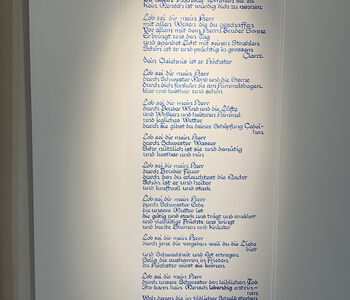 kein Mensch ist würdig dich zu nennen.
Lob sei dir mein Herr
mit allen Wesen die du geschaffen
Vor allem mit dem Herrn Bruder Sonne
Er bringt uns den Tag
und spendet Licht mit seinen Strahlen
Schön ist er und prächtig in grossem
Glanz
Dein Gleichnis ist er Höchster
Lob sei dir mein Herr
durch Schwester Mond und die Sterne
Durch dich funkeln sie am Himmelsbogen
klar und kostbar und schön
Lob sei dir mein Herr
durch Bruder Wind und die Lüfte
und Wolken und heiteren Himmel
und jegliches Wetter
durch sie gibst du deiner Schöpfung Gedei-
hen
Lob sei dir mein Herr
durch Schwester Wasser
Sehr nützlich ist sie und demütig
und kostbar und rein
Lob sei dir mein Herr
durch Bruder Feuer
durch den du erleuchtest die Nacht
Schön ist er und heiter
und kraftvoll und stark
Lob sei dir mein Herr
durch Schwester Erde
die unsere Mutter ist
die gütig und stark uns trägt und ernährt
und vielfältige Früchte uns bringt
und bunte Blumen und Kräuter
Lob sei dir mein Herr
durch jene die vergeben weil du die Liebe
bist
und Schwachheit und Not ertragen
Selig die ausharren in Frieden
Du Höchster wirst sie krönen.
Lob sei dir mein Herr
durch unsere Schwester den leiblichen Tod
Ihr kann kein Mensch lebendig entrin-
nen
Weh denen die in tödlicher Schuld sterben